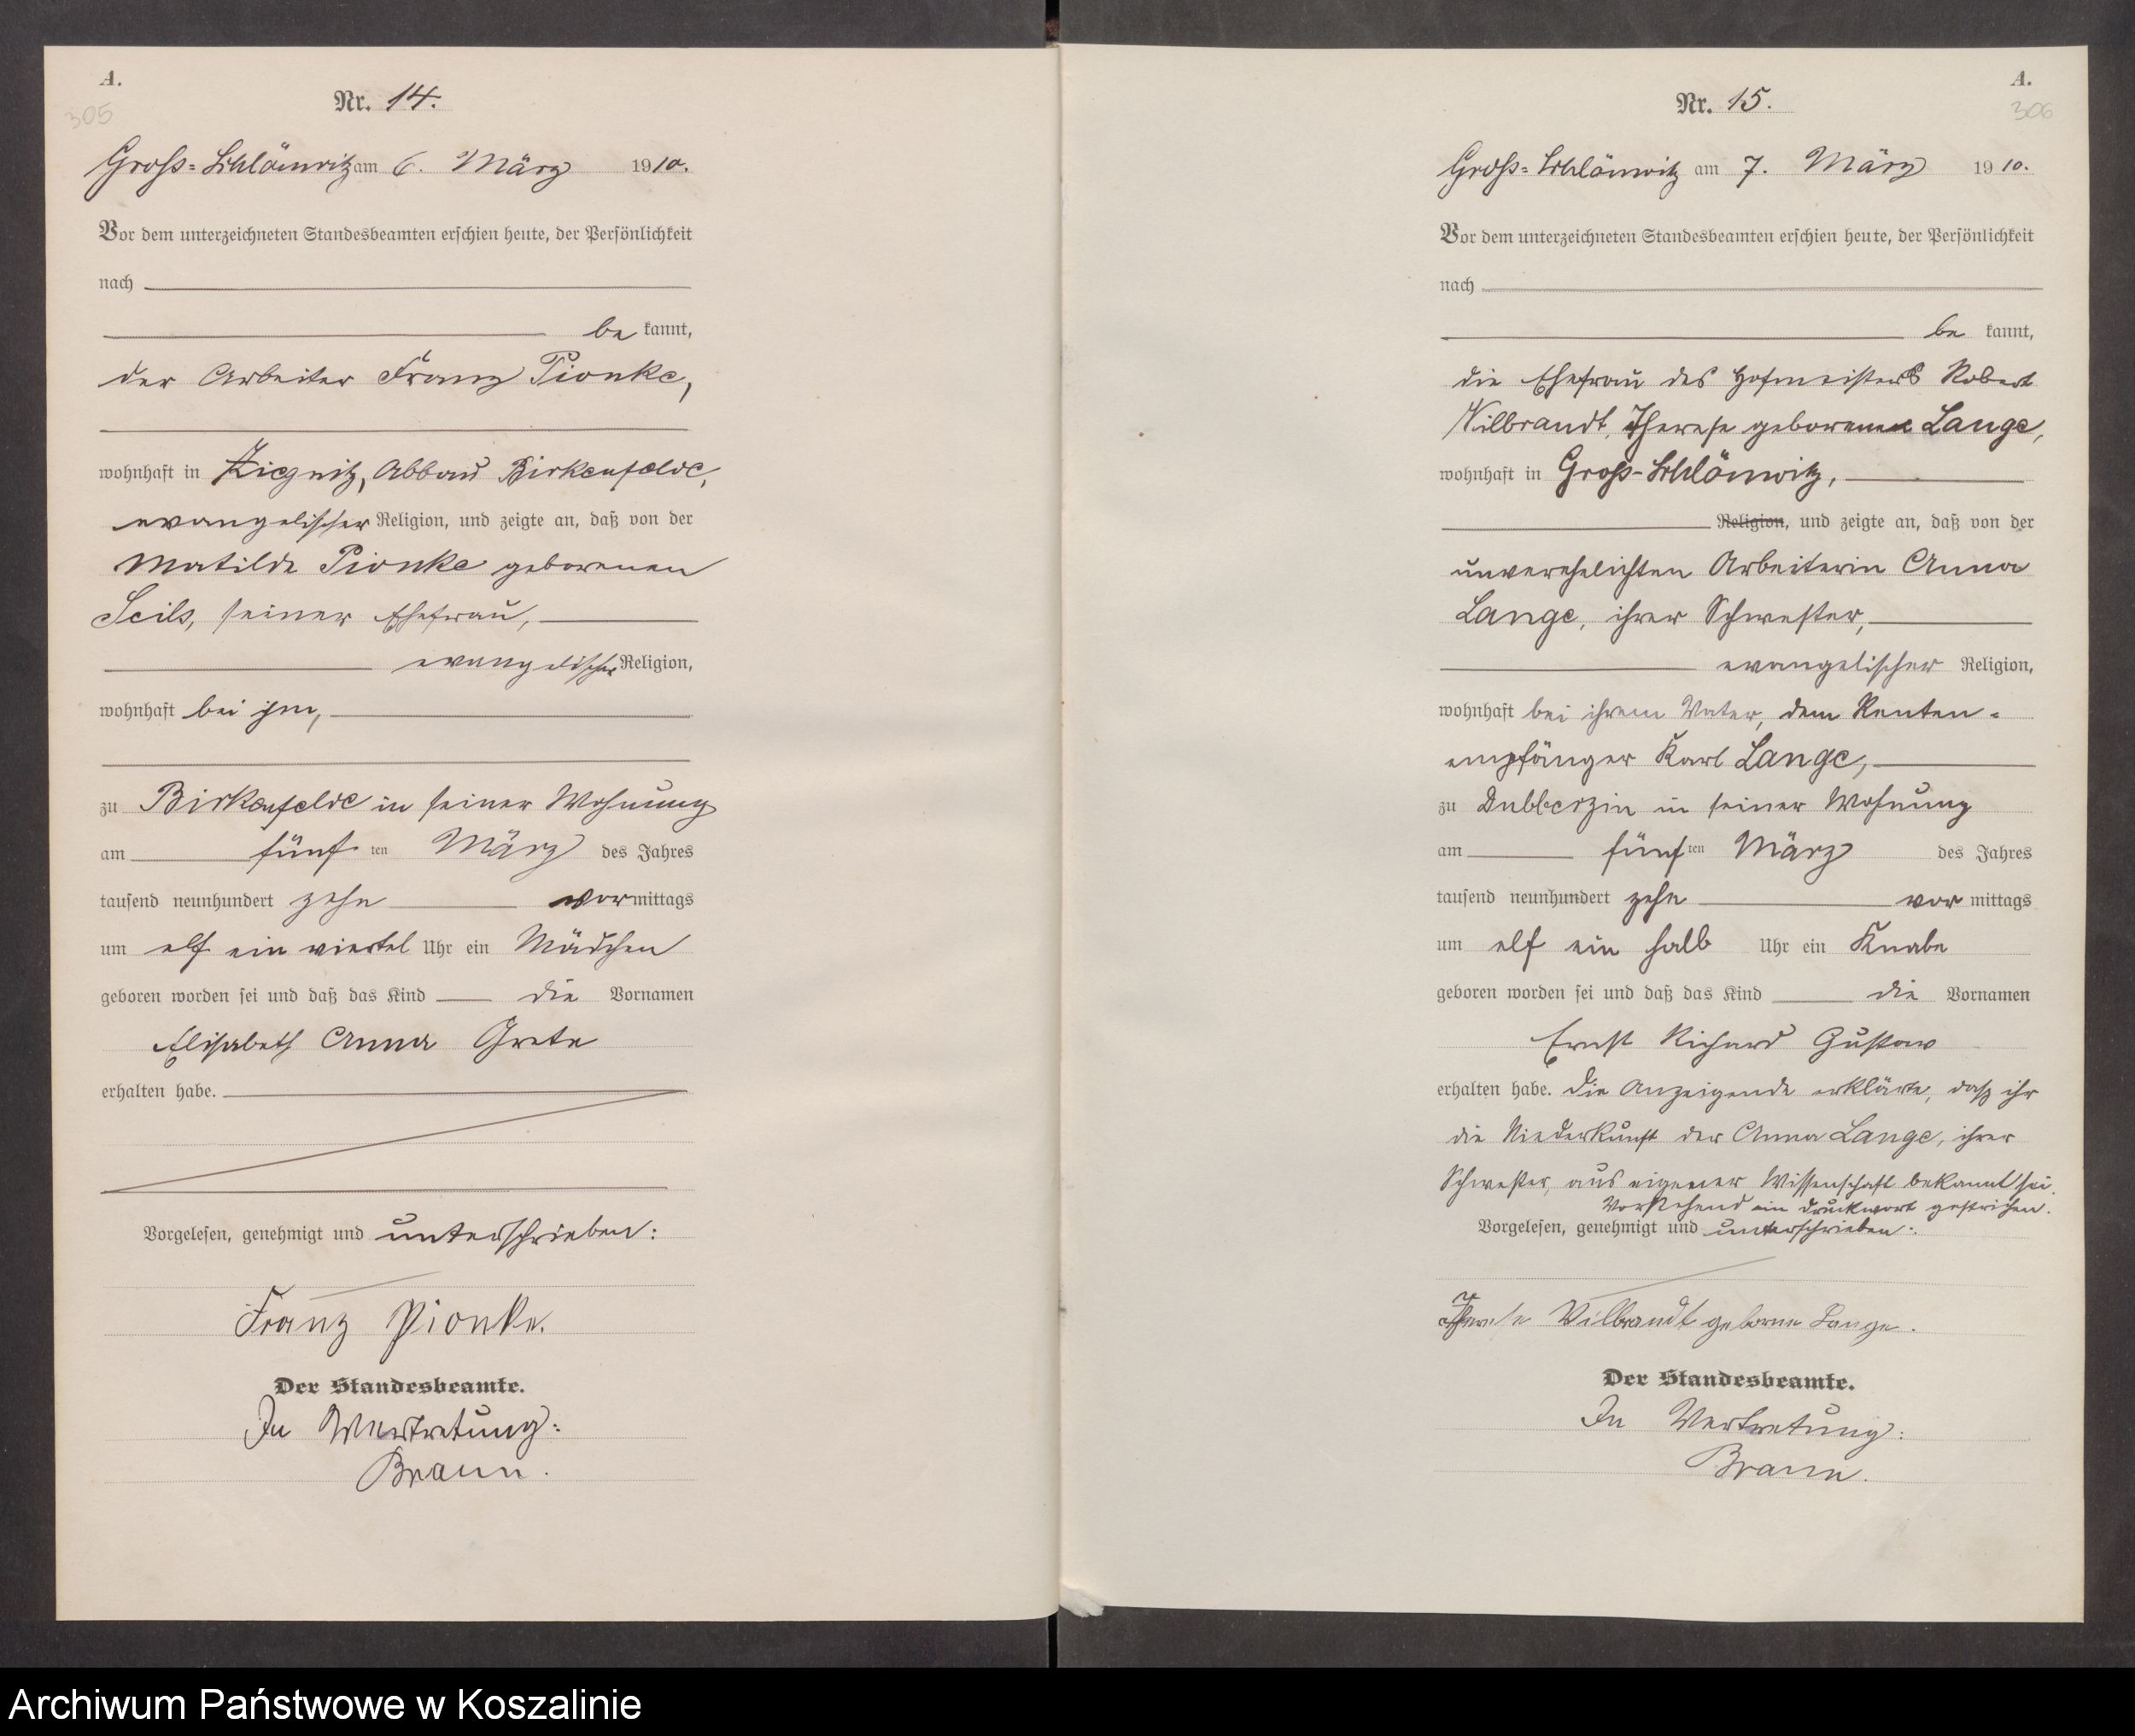 A.
305
Nr. 14.
Groß-Schlönwitz am 6. März 1910.
Vor dem unterzeichneten Standesbeamten erschien heute, der Persönlichkeit
nach
be kannt,
der Arbeiter Franz Pionke,
wohnhaft in Ziegnitz, Abbau Birkenfelde,
evangelischer Religion, und zeigte an, daß von der
Matilde Pionke geborenen
Seils, seiner Ehefrau,
evangelischer Religion,
wohnhaft bei ihm,
zu Birkenfelde in seiner Wohnung
am fünf ten März des Jahres
tausend neunhundert zehn vormittags
um elf ein viertel Uhr ein Mädchen
geboren worden sei und daß das Kind die Vornamen
Elisabeth Anna Grete
erhalten habe.
Vorgelesen, genehmigt und unterschrieben:
Franz Pionke.
Der Standesbeamte.
In Vertretung:
Braun.
A.
306
Nr. 15.
Groß-Schlönwitz am 7. März 1910.
Vor dem unterzeichneten Standesbeamten erschien heute, der Persönlichkeit
nach
be kannt,
die Ehefrau des Hofmeisters Robert
Wilbrandt, Therese geborene Lange,
wohnhaft in Groß-Schlönwitz,
Religion, und zeigte an, daß von der
unverehelichten Arbeiterin Anna
Lange, ihrer Schwester,
evangelischer Religion,
wohnhaft bei ihrem Vater, dem Renten-
empfänger Karl Lange,
zu Dubberzin in seiner Wohnung
am fünf ten März des Jahres
tausend neunhundert zehn vor mittags
um elf ein halb Uhr ein Knabe
geboren worden sei und daß das Kind die Vornamen
Ernst Richard Gustav
erhalten habe. Die Anzeigende erklärte, daß ihr
die Niederkunft der Anna Lange, ihrer
Schwester, aus eigener Wissenschaft bekannt sei.
Vorstehend ein Druckwort gestrichen.
Vorgelesen, genehmigt und unterschrieben:
Therese Wilbrandt geborne Lange.
Der Standesbeamte.
In Vertretung:
Braun.
Archiwum Państwowe w Koszalinie